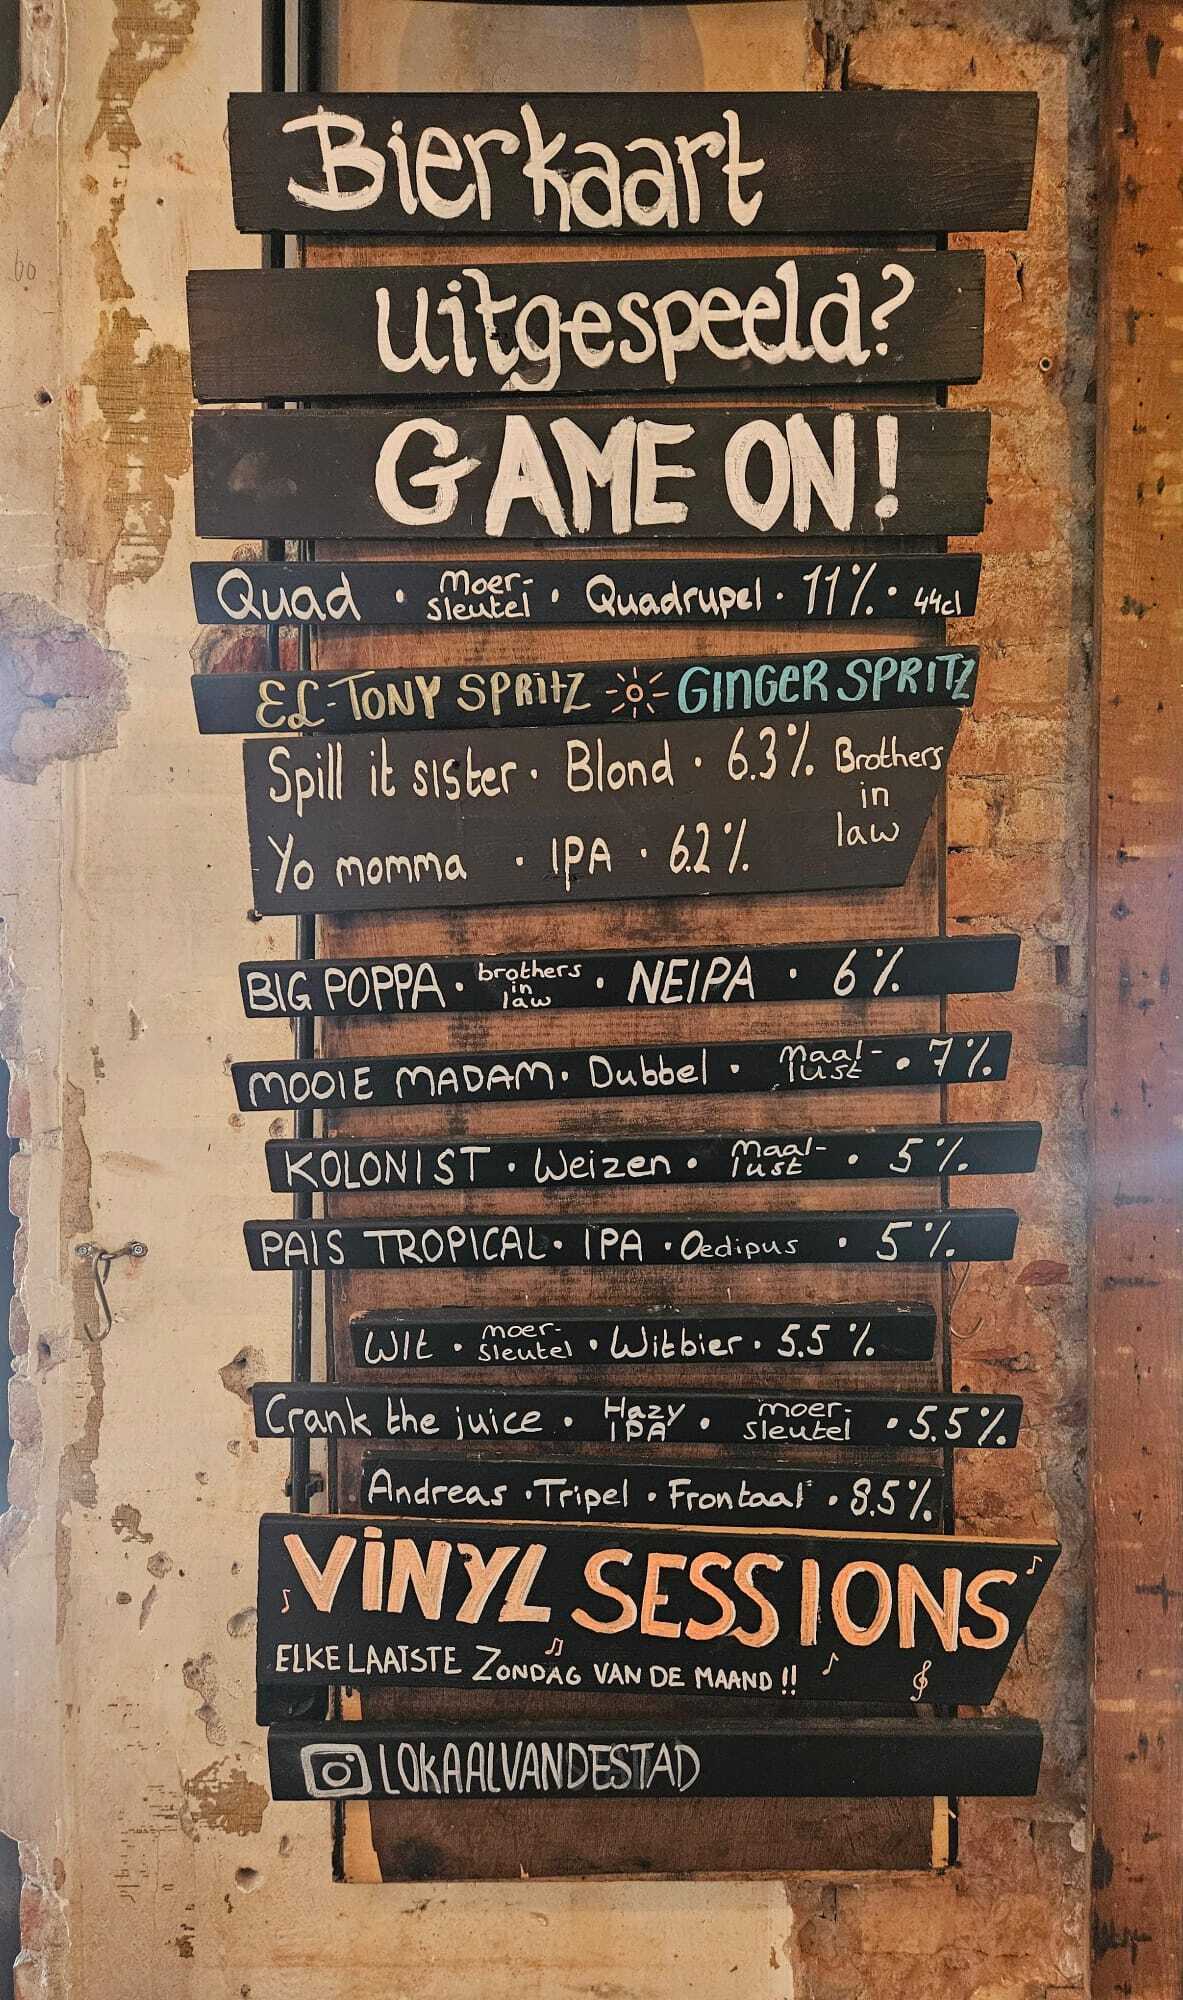 Bierkaart
uitgespeeld?
GAME ON!
Quad · Moer-sleutel · Quadrupel · 11% · 44cl
EL-TONY SPRITZ GINGER SPRITZ
Spill it sister · Blond · 6.3% Brothers
in
law
Yo momma · IPA · 6.2%
BIG POPPA · brothers in law · NEIPA · 6%
MOOIE MADAM · Dubbel · Maal-lust · 7%
KOLONIST · Weizen · Maal-lust · 5%
PAIS TROPICAL · IPA · Oedipus · 5%
Wit · moer-sleutel · Witbier · 5.5%
Crank the juice · Hazy IPA · moer-sleutel · 5.5%
Andreas · Tripel · Frontaal · 8.5%
VINYL SESSIONS
ELKE LAATSTE ZONDAG VAN DE MAAND!!
LOKAALVANDESTAD